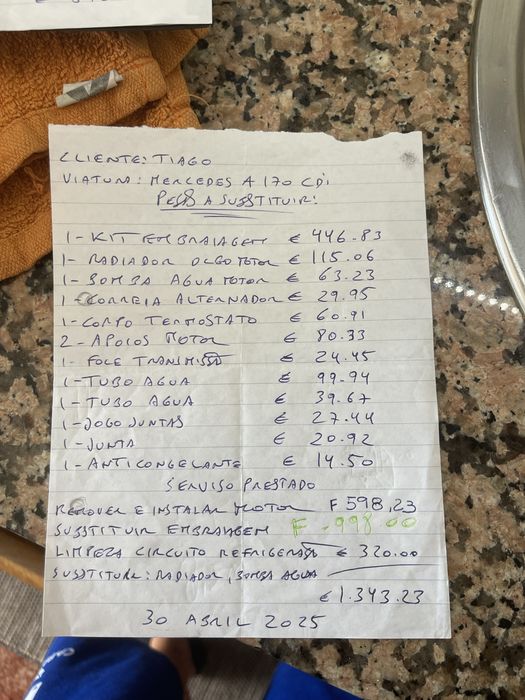 CLIENTE: TIAGO
VIATURA: MERCEDES A 170 CDi
PEÇAS A SUBSTITUIR:
1- KIT EMBRAIAGEM € 446.83
1- RADIADOR OLEO MOTOR € 115.06
1- BOMBA AGUA MOTOR € 63.23
1- CORREIA ALTERNADOR € 29.95
1- CORPO TERMOSTATO € 60.91
2- APOIOS MOTOR € 80.33
1- FOLE TRANSMISSÃO € 24.45
1- TUBO AGUA € 99.94
1- TUBO AGUA € 39.67
1- JOGO JUNTAS € 27.44
1- JUNTA € 20.92
1- ANTICONGELANTE € 14.50
SERVISO PRESTADO
REMOVER E INSTALAR MOTOR F 598,23
SUBSTITUIR EMBRAIAGEM F .998.00
LIMPEZA CIRCUITO € 320.00
SUBSTITUIR: RADIADOR, BOMBA AGUA
€ 1.343.23
30 ABRIL 2025